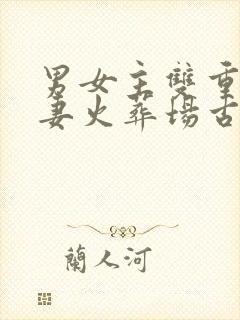 男女主雙重
妻火葬場古
蘭人河